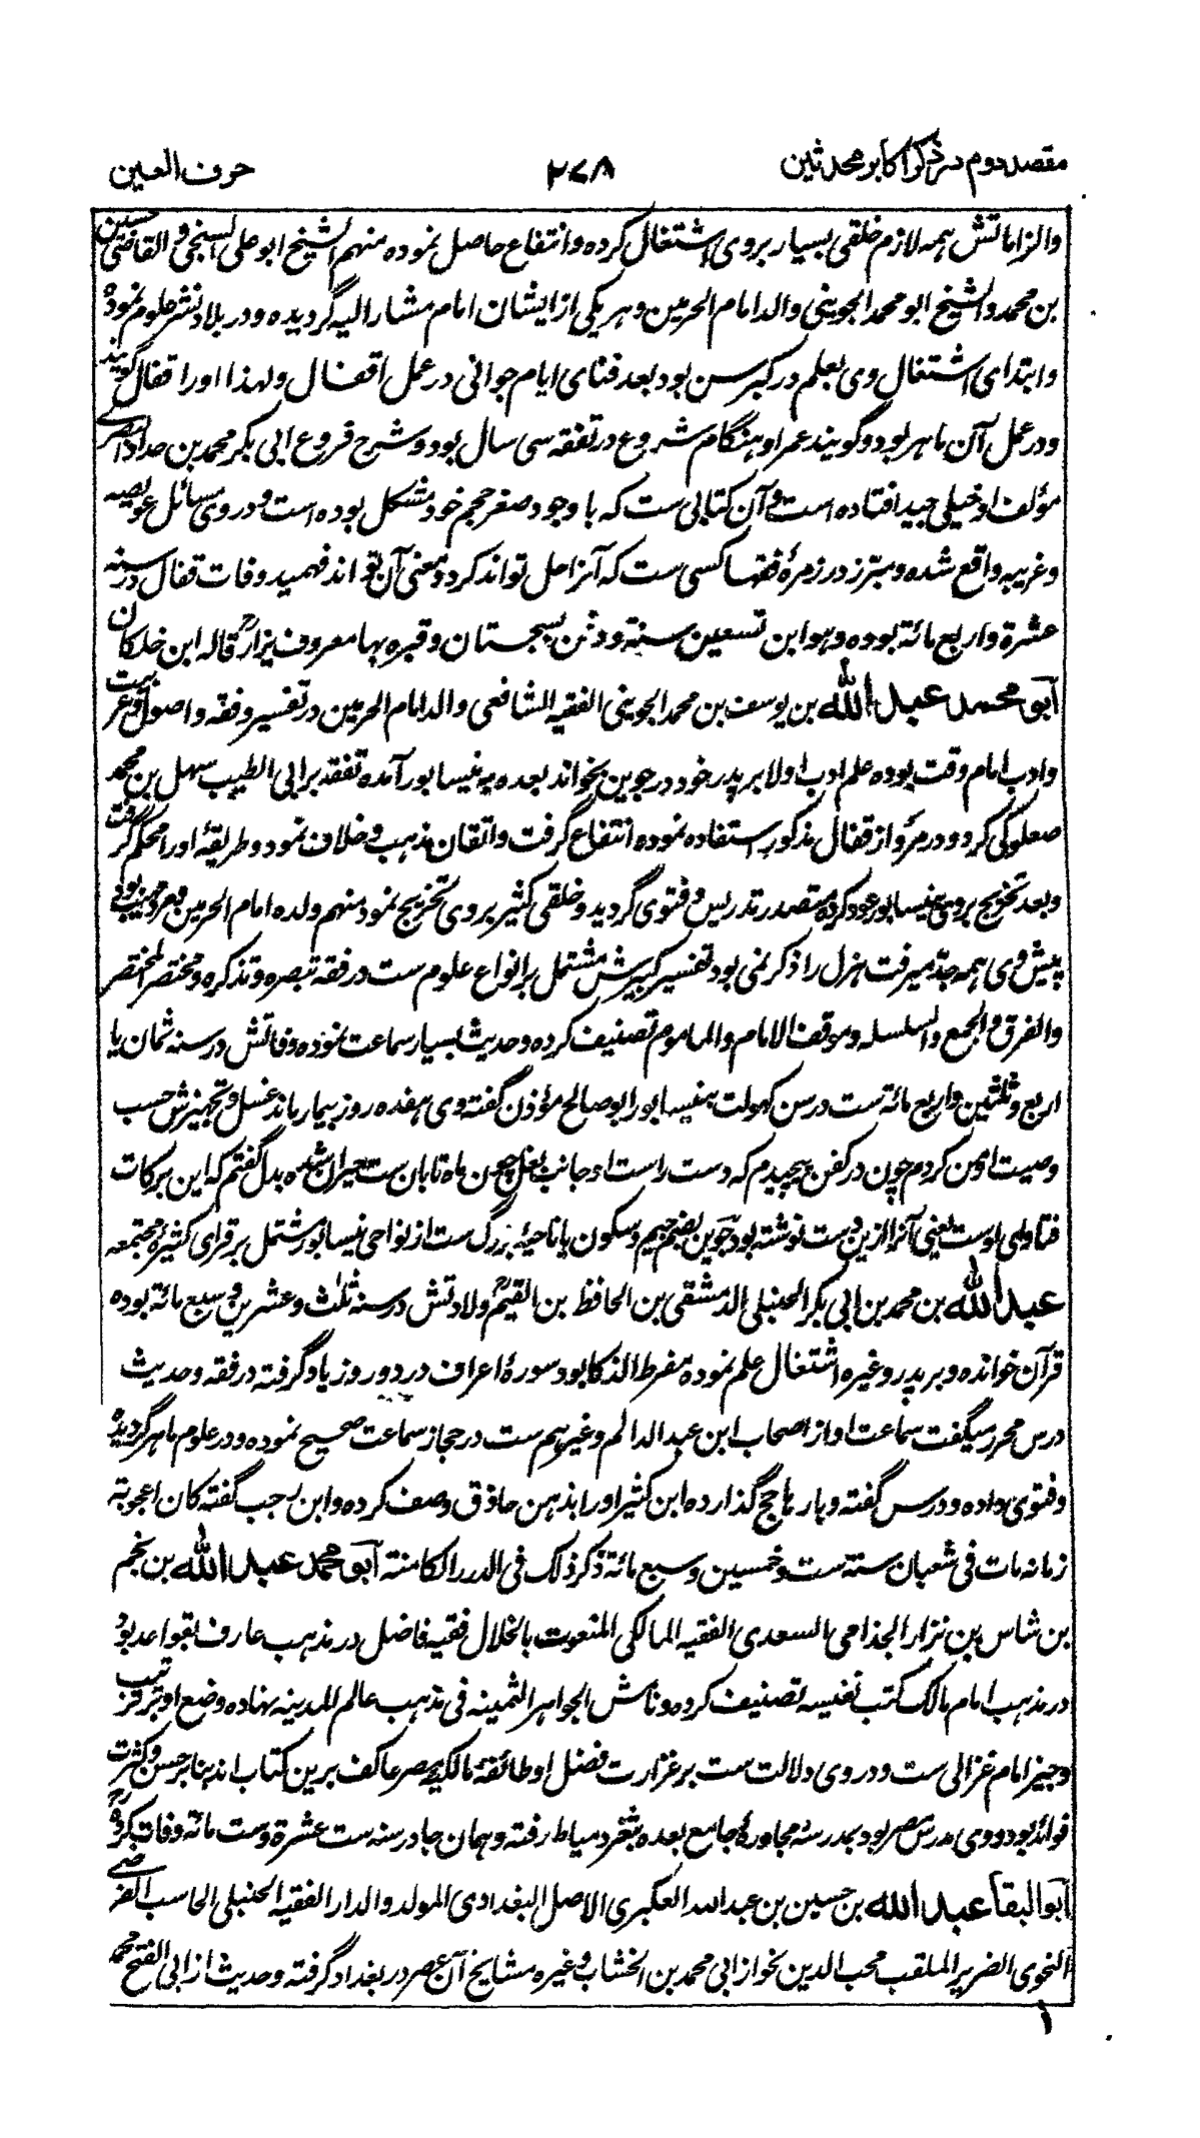 مقصد دوم در ذکر اکابر محدثین ۲۷۸ حرف العین
والزاماتش همه لازم خلقی بسیار بر وی اشتغال کرده و انتفاع حاصل نموده منهم الشیخ ابو علی السنجی و القاضی حسین
بن محمد و الشیخ ابو محمد الجوینی والد امام الحرمین و هر یکی از ایشان امام مشار الیه گردیده و در بلاد نشر علوم نموده
و ابتدای اشتغال وی بعلم در کبر سن بود بعد فنای ایام جوانی در عمل اقفال و لهذا او را قفال گویند
و در عمل آن ماهر بود و گویند عمر او هنگام شروع در تفقه سی سال بود و شرح فروع ابی بکر محمد بن حداد المصری
مؤلف او خیلی جید افتاده است و آن کتابی ست که با وجود صغر حجم خود مشکل بوده است و در وی مسائل عویصه
و غریبه واقع شده و مبرز در زمرهٔ فقها کسی ست که آنرا حل تواند کرد و معنی آن تواند فهمید وفات قفال در سنه
عشرة و اربع مائة بوده و هو ابن تسعین سنة و دفن بسجستان و قبره بها معروف یزار قاله ابن خلکان
ابو محمد عبد الله بن یوسف بن محمد الجوینی الفقیه الشافعی والد امام الحرمین در تفسیر و فقه و اصول و عربیت
و ادب امام وقت بوده علم ادب اولا بر پدر خود در جوین بخواند بعده به نیسابور آمده تفقه بر ابی الطیب سهل بن محمد
صعلوکی کرد و در مرو از قفال مذکور استفاده نموده انتفاع گرفت و اتقان مذهب و خلاف نمود و طریقهٔ او را محکم گرفت
و بعد تخریج بر وی بنیسابور عود کرده متصدر تدریس و فتوی گردید و خلقی کثیر بر وی تخریج نمود منهم ولده امام الحرمین و مرد مهیب بود
پیش وی همه جد میرفت هزل را ذکر نمی بود تفسیر کبیرش مشتمل بر انواع علوم ست در فقه تبصره و تذکره و مختصر المختصر
و الفرق و الجمع و السلسله و موقف الامام و الماموم تصنیف کرده و حدیث بسیار سماعت نموده وفاتش در سنه ثمان یا
اربع و ثلثین و اربع مائة ست در سن کهولت بنیسابور ابو صالح مؤذن گفته وی هفده روز بیمار ماند غسل و تجهیزش حسب
وصیت او من کردم چون در کفن پیچیدم که دست راست او جانب بغل چون ماه تابان ست حیران شده بدل گفتم که این برکات
فتاوای اوست یعنی آنرا ازین دست نوشته بود جوین بضم جیم و سکون یا ناحیهٔ بزرگ ست از نواحی نیسابور مشتمل بر قرای کثیره مجتمعه
عبد الله بن محمد بن ابی بکر الحنبلی الدمشقی بن الحافظ بن القیم ولادتش در سنه ثلث و عشرین و سبع مائة بوده
قرآن خوانده و بر پدر و غیره اشتغال علم نموده مفرط الذکا بود سورهٔ اعراف در دو روز یاد گرفته در فقه و حدیث
درس محرر میگفت سماعت او از اصحاب ابن عبد الدائم و غیرهم ست در حجاز سماعت صحیح نموده و در علوم ماهر گردیده
و فتوی داده و درس گفته و بارها حج گذارده ابن کثیر او را بذهن حاذق وصف کرده و ابن رجب گفته کان اعجوبة
زمانه مات فی شعبان سنة ست و خمسین و سبع مائة ذکر ذلک فی الدرر الکامنة ابو محمد عبد الله بن نجم
بن شاس بن نزار الجذامی السعدی الفقیه المالکی المنعوت بالخلال فقیه فاضل در مذهب عارف بقواعد بود
در مذهب امام مالک کتب نفیسه تصنیف کرده و نامش الجواهر الثمینه فی مذهب عالم المدینه نهاده وضع او بر ترتیب
وجیز امام غزالی ست و در وی دلالت ست بر غزارت فضل او طائفهٔ مالکیهٔ مصر عاکف برین کتاب اند بنا بر حسن و کثرت
فوائد بود و وی مدرس مصر بود بمدرسهٔ مجاورهٔ جامع بعده بثغر دمیاط رفته و همان جا در سنه ست عشرة و ست مائة وفات کرده
ابو البقا عبد الله بن حسین بن عبد الله العکبری الاصل البغدادی المولد و الدار الفقیه الحنبلی الحاسب الفرضی
النحوی الضریر الملقب محب الدین نحو از ابی محمد بن الخشاب و غیره مشایخ آن عصر در بغداد گرفته و حدیث از ابی الفتح محمد
۱